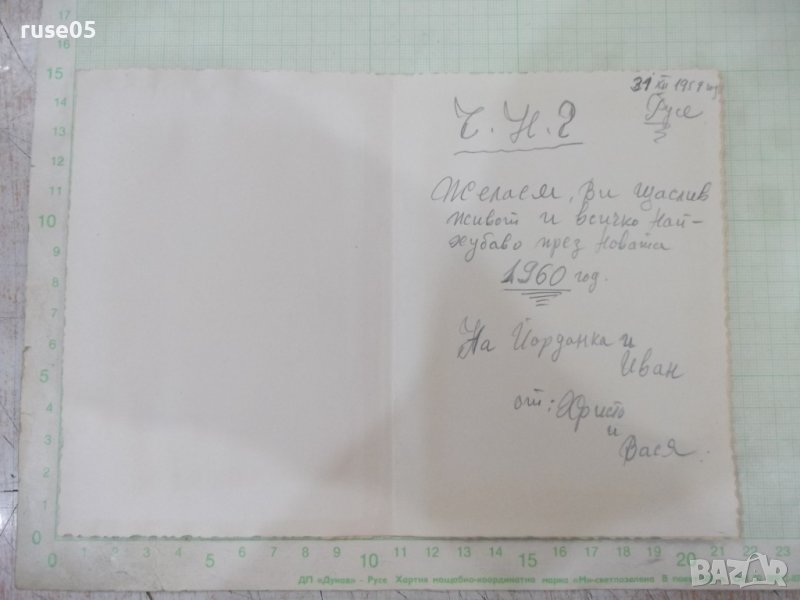 ruse05
31 XII 1959 год
Русе
Ч. Н. Г
Желаем, Ви щаслив
живот и всичко най-
хубаво през новата
1960 год.
На Йорданка и
Иван
от: Христо
и
Вася.
17
16
15
14
13
12
11
10
9
8
7
6
5
4
3
2
1
0
0 1 2 3 4 5 6 7 8 9 10 11 12 13 14 15 16 17 18 19 20 21
ДП «Дунав» - Русе Хартия нощобно-координатна марка
BAZAR